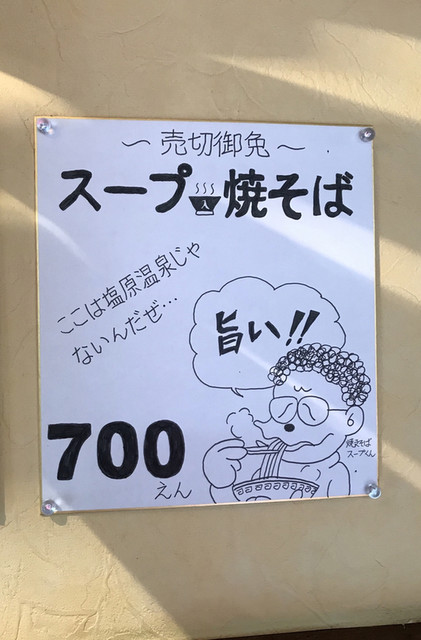 ～売切御免～
スープ入焼そば
ここは塩原温泉じゃ
ないんだぜ…
旨い!!
700
えん
焼そば
スープくん